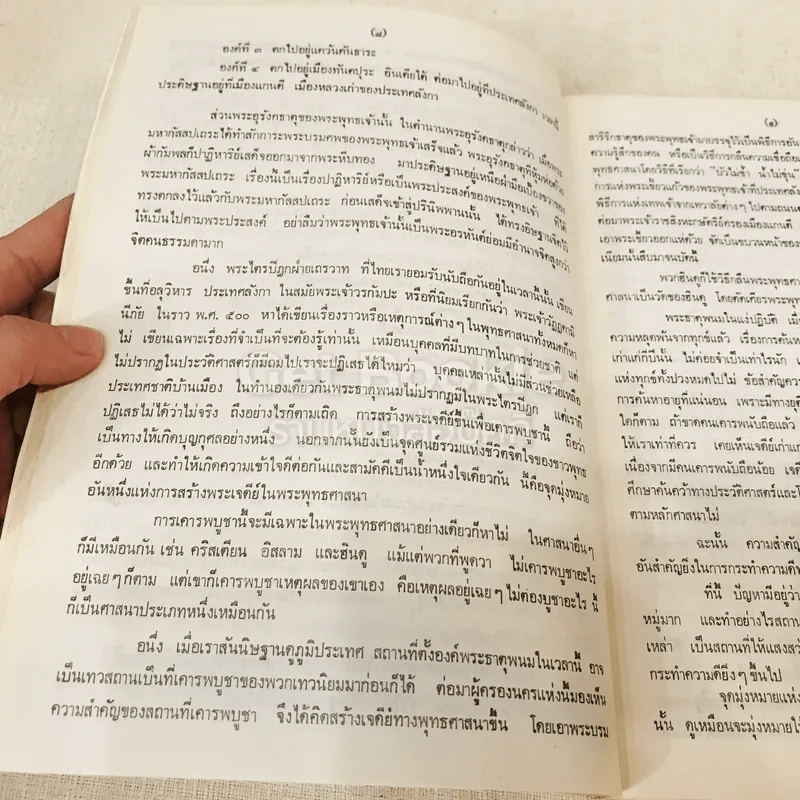 (๘)
องค์ที่ ๓ ตกไปอยู่แควันคันธาระ
องค์ที่ ๔ ตกไปอยู่เมืองทันตปุระ อินเดียใต้ ต่อมาไปอยู่ที่ประเทศลังกา เวลานี้
ประดิษฐานอยู่ที่เมืองแกนดี เมืองหลวงเก่าของประเทศลังกา
ส่วนพระอุรังคธาตุของพระพุทธเจ้านั้น ในตำนานพระอุรังคธาตุกล่าวว่า เมื่อพระ
มหากัสสปเถระได้ทำสักการะพระบรมศพของพระพุทธเจ้าเสร็จแล้ว พระอุรังคธาตุที่หุ้มห่อด้วย
ผ้ากัมพลก็ปาฏิหาริย์เสด็จออกมาจากพระหีบทอง มาประดิษฐานอยู่เหนือฝ่ามือเบื้องขวาของ
พระมหากัสสปเถระ เรื่องนี้เป็นเรื่องปาฏิหาริย์หรือเป็นพระประสงค์ของพระพุทธเจ้า ที่ได้
ทรงตกลงไว้แล้วกับพระมหากัสสปเถระ ก่อนเสด็จเข้าสู่ปรินิพพานนั้น ได้ทรงอธิษฐานจิตไว้
ให้เป็นไปตามพระประสงค์ อย่าลืมว่าพระพุทธเจ้านั้นเป็นพระอรหันต์ย่อมมีอำนาจจิตสูงกว่า
จิตคนธรรมดามาก
อนึ่ง พระไตรปิฎกฝ่ายเถรวาท ที่ไทยเรายอมรับนับถือกันอยู่ในเวลานี้นั้น เขียน
ขึ้นที่อลุวิหาร ประเทศลังกา ในสมัยพระเจ้าวรกัมปะ หรือที่นิยมเรียกกันว่า พระเจ้าวัฏฏคามิ
นีภัย ในราว พ.ศ. ๕๐๐ หาได้เขียนเรื่องราวหรือเหตุการณ์ต่างๆ ในพุทธศาสนาทั้งหมดก็หา
ไม่ เขียนเฉพาะเรื่องที่จำเป็นที่จะต้องรู้เท่านั้น เหมือนบุคคลที่มีบทบาทในการช่วยชาติ แต่
ไม่ปรากฏในประวัติศาสตร์ก็มีถมไปเราจะปฏิเสธได้ไหมว่า บุคคลเหล่านั้นไม่มีส่วนช่วยเหลือ
ประเทศชาติบ้านเมือง ในทำนองเดียวกันพระธาตุพนมไม่ปรากฏมีในพระไตรปิฎก แต่เราก็
ปฏิเสธไม่ได้ว่าไม่จริง ถึงอย่างไรก็ตามเถิด การสร้างพระเจดีย์ขึ้นเพื่อเคารพบูชานี้ ถือว่า
เป็นทางให้เกิดบุญกุศลอย่างหนึ่ง นอกจากนั้นยังเป็นจุดศูนย์รวมแห่งชีวิตจิตใจของชาวพุทธ
อีกด้วย และทำให้เกิดความเข้าใจดีต่อกันและสามัคคีเป็นน้ำหนึ่งใจเดียวกัน นี้คือจุดมุ่งหมาย
อันหนึ่งแห่งการสร้างพระเจดีย์ในพระพุทธศาสนา
การเคารพบูชานี้จะมีเฉพาะในพระพุทธศาสนาอย่างเดียวก็หาไม่ ในศาสนาอื่นๆ
ก็มีเหมือนกัน เช่น คริสเตียน อิสลาม และฮินดู แม้แต่พวกที่พูดวา ไม่เคารพบูชาอะไร
อยู่เฉยๆ ก็ตาม แต่เขาก็เคารพบูชาเหตุผลของเขาเอง คือเหตุผลอยู่เฉยๆ ไม่ต้องบูชาอะไร นี้
ก็เป็นศาสนาประเภทหนึ่งเหมือนกัน
อนึ่ง เมื่อเราสันนิษฐานดูภูมิประเทศ สถานที่ตั้งองค์พระธาตุพนมในเวลานี้ อาจ
เป็นเทวสถานเป็นที่เคารพบูชาของพวกเทวนิยมมาก่อนก็ได้ ต่อมาผู้ครองนครแห่งนี้มองเห็น
ความสำคัญของสถานที่เคารพบูชา จึงได้คิดสร้างเจดีย์ทางพุทธศาสนาขึ้น โดยเอาพระบรม
(๑)
สารีริกธาตุของพระพุทธเจ้ามาบรรจุไว้เป็นพิธีการอัน
ความรู้สึกของคน หรือเป็นวิธีการกลืนความเชื่อถือเ
พุทธศาสนาโดยวิธีที่เรียกว่า "บัวไม่ช้ำ น้ำไม่ขุ่น"
การแห่งพระเขี้ยวแก้วของพระพุทธเจ้าที่ประเทศลัง
พิธีการแห่เทพเจ้าจากเทวาลัยต่างๆ ไปตามถนนต
ต่อมาพระเจ้าราชสิงหะกษัตริย์ครองเมืองแกนดี
เอาพระเขี้ยวออกแห่ด้วย จัดเป็นขบวนหน้าของ
เนียมนั้นสืบมาจนบัดนี้
พวกฮินดูก็ใช้วิธีกลืนพระพุทธศา
ศาสนาเป็นวัดของฮินดู โดยดัดเศียรพระพุทธ
พระธาตุพนมในแง่ปฏิบัติ เมื่
ความหลุดพ้นจากทุกข์แล้ว เรื่องการค้นห
เก่าแก่กี่ปีนั้น ไม่ค่อยจำเป็นเท่าไรนัก เ
แห่งทุกข์ทั้งปวงหมดไปไม่ ข้อสำคัญควร
การค้นหาอายุที่แน่นอน เพราะมีทางยุติ
ใดก็ตาม ถ้าขาดคนเคารพนับถือแล้ว
ให้เราเท่าที่ควร เคยเห็นเจดีย์เก่าแก
เนื่องจากมีคนเคารพนับถือน้อย เจดี
ศึกษาค้นคว้าทางประวัติศาสตร์และโ
ตามหลักศาสนาไม่
ฉะนั้น ความสำคัญ
อันสำคัญยิ่งในการกระทำความดีท
ที่นี้ ปัญหามีอยู่ว่า
หมู่มาก และทำอย่างไรสถาน
เหล่า เป็นสถานที่ให้แสงสว
กระทำความดียิ่งๆ ขึ้นไป
จุดมุ่งหมายแห่ง
นั้น ดูเหมือนจะมุ่งหมายใ